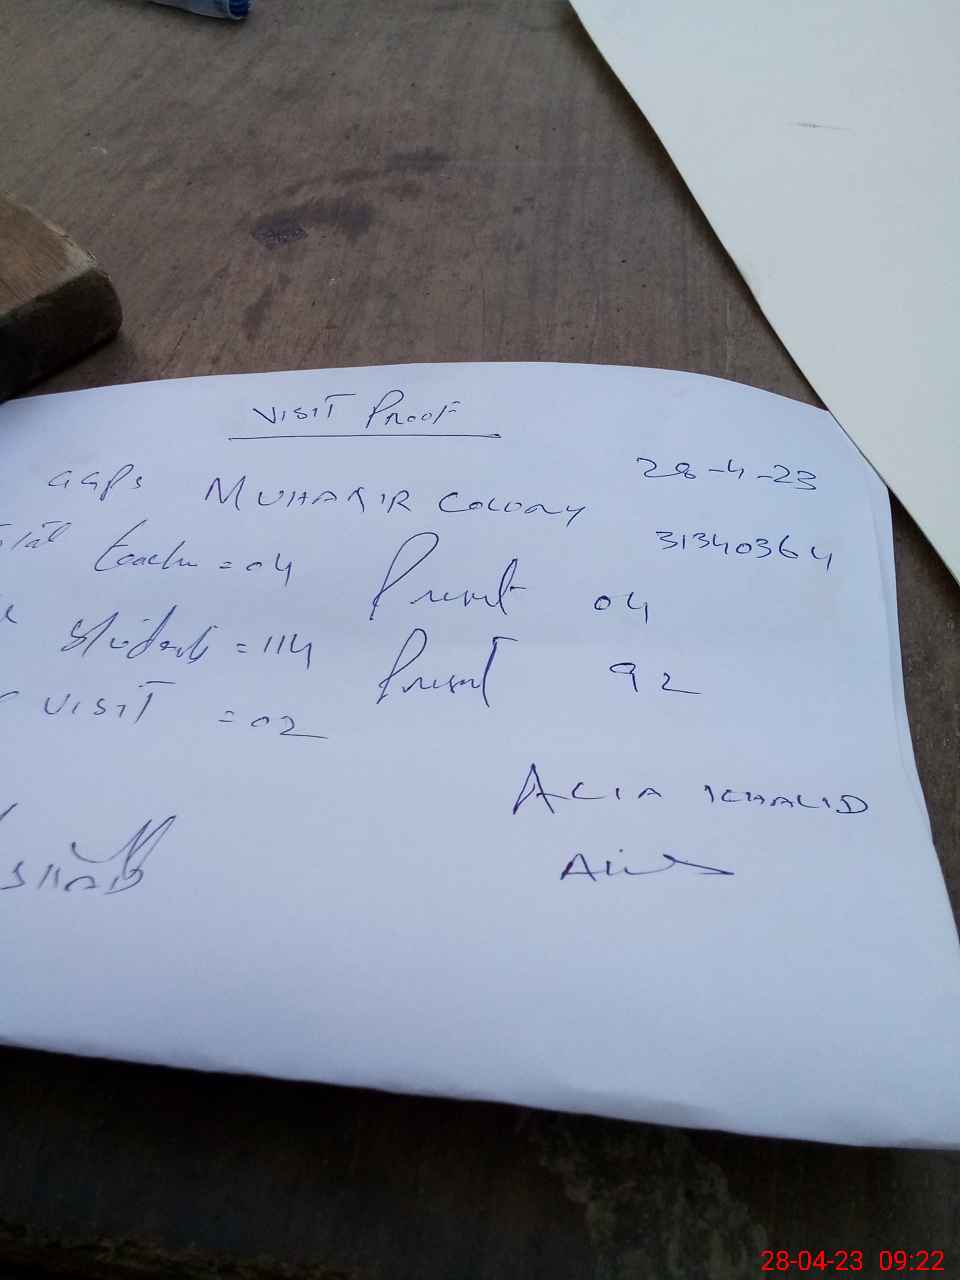 VISIT Proof
GGPS MUHAJIR COLONY 28-4-23
31340364
teacher = 04 Present 04
students = 114 Present 92
VISIT = 02
ALIA KHALID
28-04-23 09:22